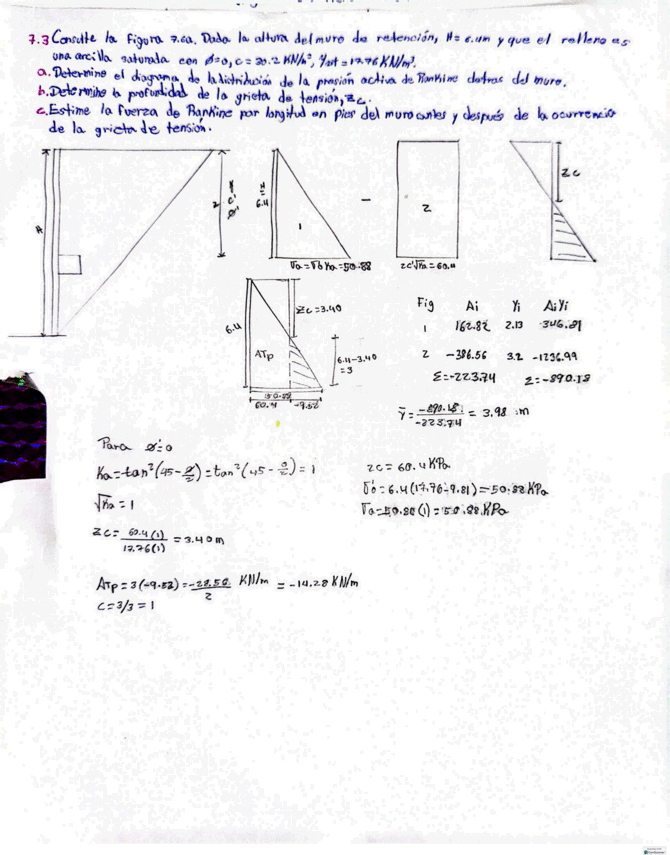 7.3 Consulte la Figura 7.6a. Dada la altura del muro de retención, H= 6.4m y que el relleno es
una arcilla saturada con ø=0, c= 30.2 KN/m², γsat = 17.76 KN/m³.
a. Determine el diagrama de la distribución de la presión activa de Rankine detras del muro.
b. Determine la profundidad de la grieta de tensión, Zc.
c. Estime la fuerza de Rankine por longitud en pies del muro antes y después de la ocurrencia
de la grieta de tensión.
H
Z
γ
c'
ø'
H=
6.4
1
σa = σ'o Ka = 50.88
−
2
2c'√Ka = 60.4
Zc
6.4
Zc=3.40
ATp
6.4-3.40
=3
50.88
60.4
-9.52
Fig Ai Yi AiYi
1 162.82 2.13 346.81
2 -386.56 3.2 -1236.99
Σ=-223.74 Σ=-890.18
ȳ = -890.18 / -223.74 = 3.98 m
Para ø'=0
Ka=tan²(45-ø/2)=tan²(45-0/2)=1
√Ka = 1
Zc= 60.4(1) / 17.76(1) = 3.40m
2c= 60.4 KPa
σ'o= 6.4(17.76-9.81)=50.88 KPa
σa=50.88(1)=50.88 KPa
ATp = 3(-9.52)=-28.56/2 KN/m = -14.28 KN/m
C=3/3=1